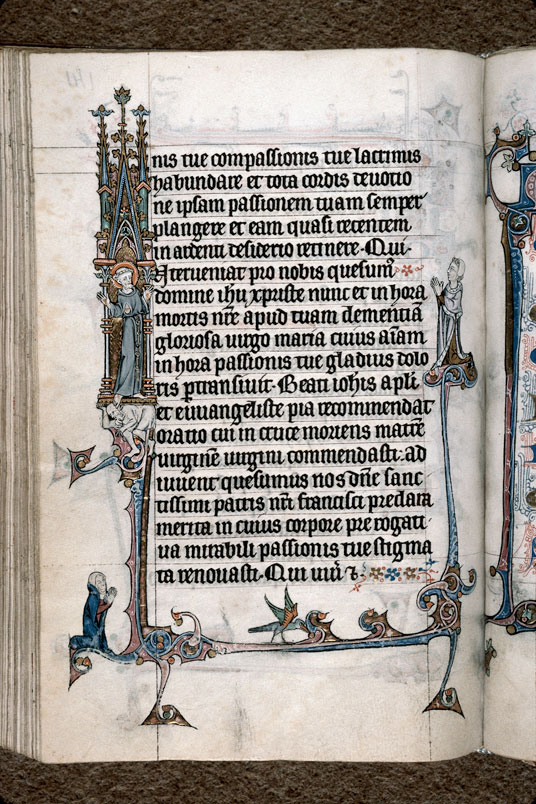 nis tue compassionis tue lacrimis
habundare et tota cordis deuotio
ne ipsam passionem tuam semper
plangere et eam quasi recentem
in ardenti desiderio retinere. Qui.
Interueniat pro nobis quesum̉
domine ihũ xpriste nunc et in hora
mortis nr̃e apud tuam clemenciã
gloriosa uirgo maria cuius aĩam
in hora passionis tue gladius dolo
ris ꝑtransiuit. Beati ioh̃is apl̃i
et euuangeliste pia recommendat
oratio cui in cruce moriens matrẽ
uirginẽ uirgini commendasti: ad
iuuent quesumus nos dñe sanc
tissimi patris nr̃i francisci preclara
merita in cuius corpore pre rogati
ua mirabili passionis tue stigma
ta renouasti. Qui uiũ ⁊.